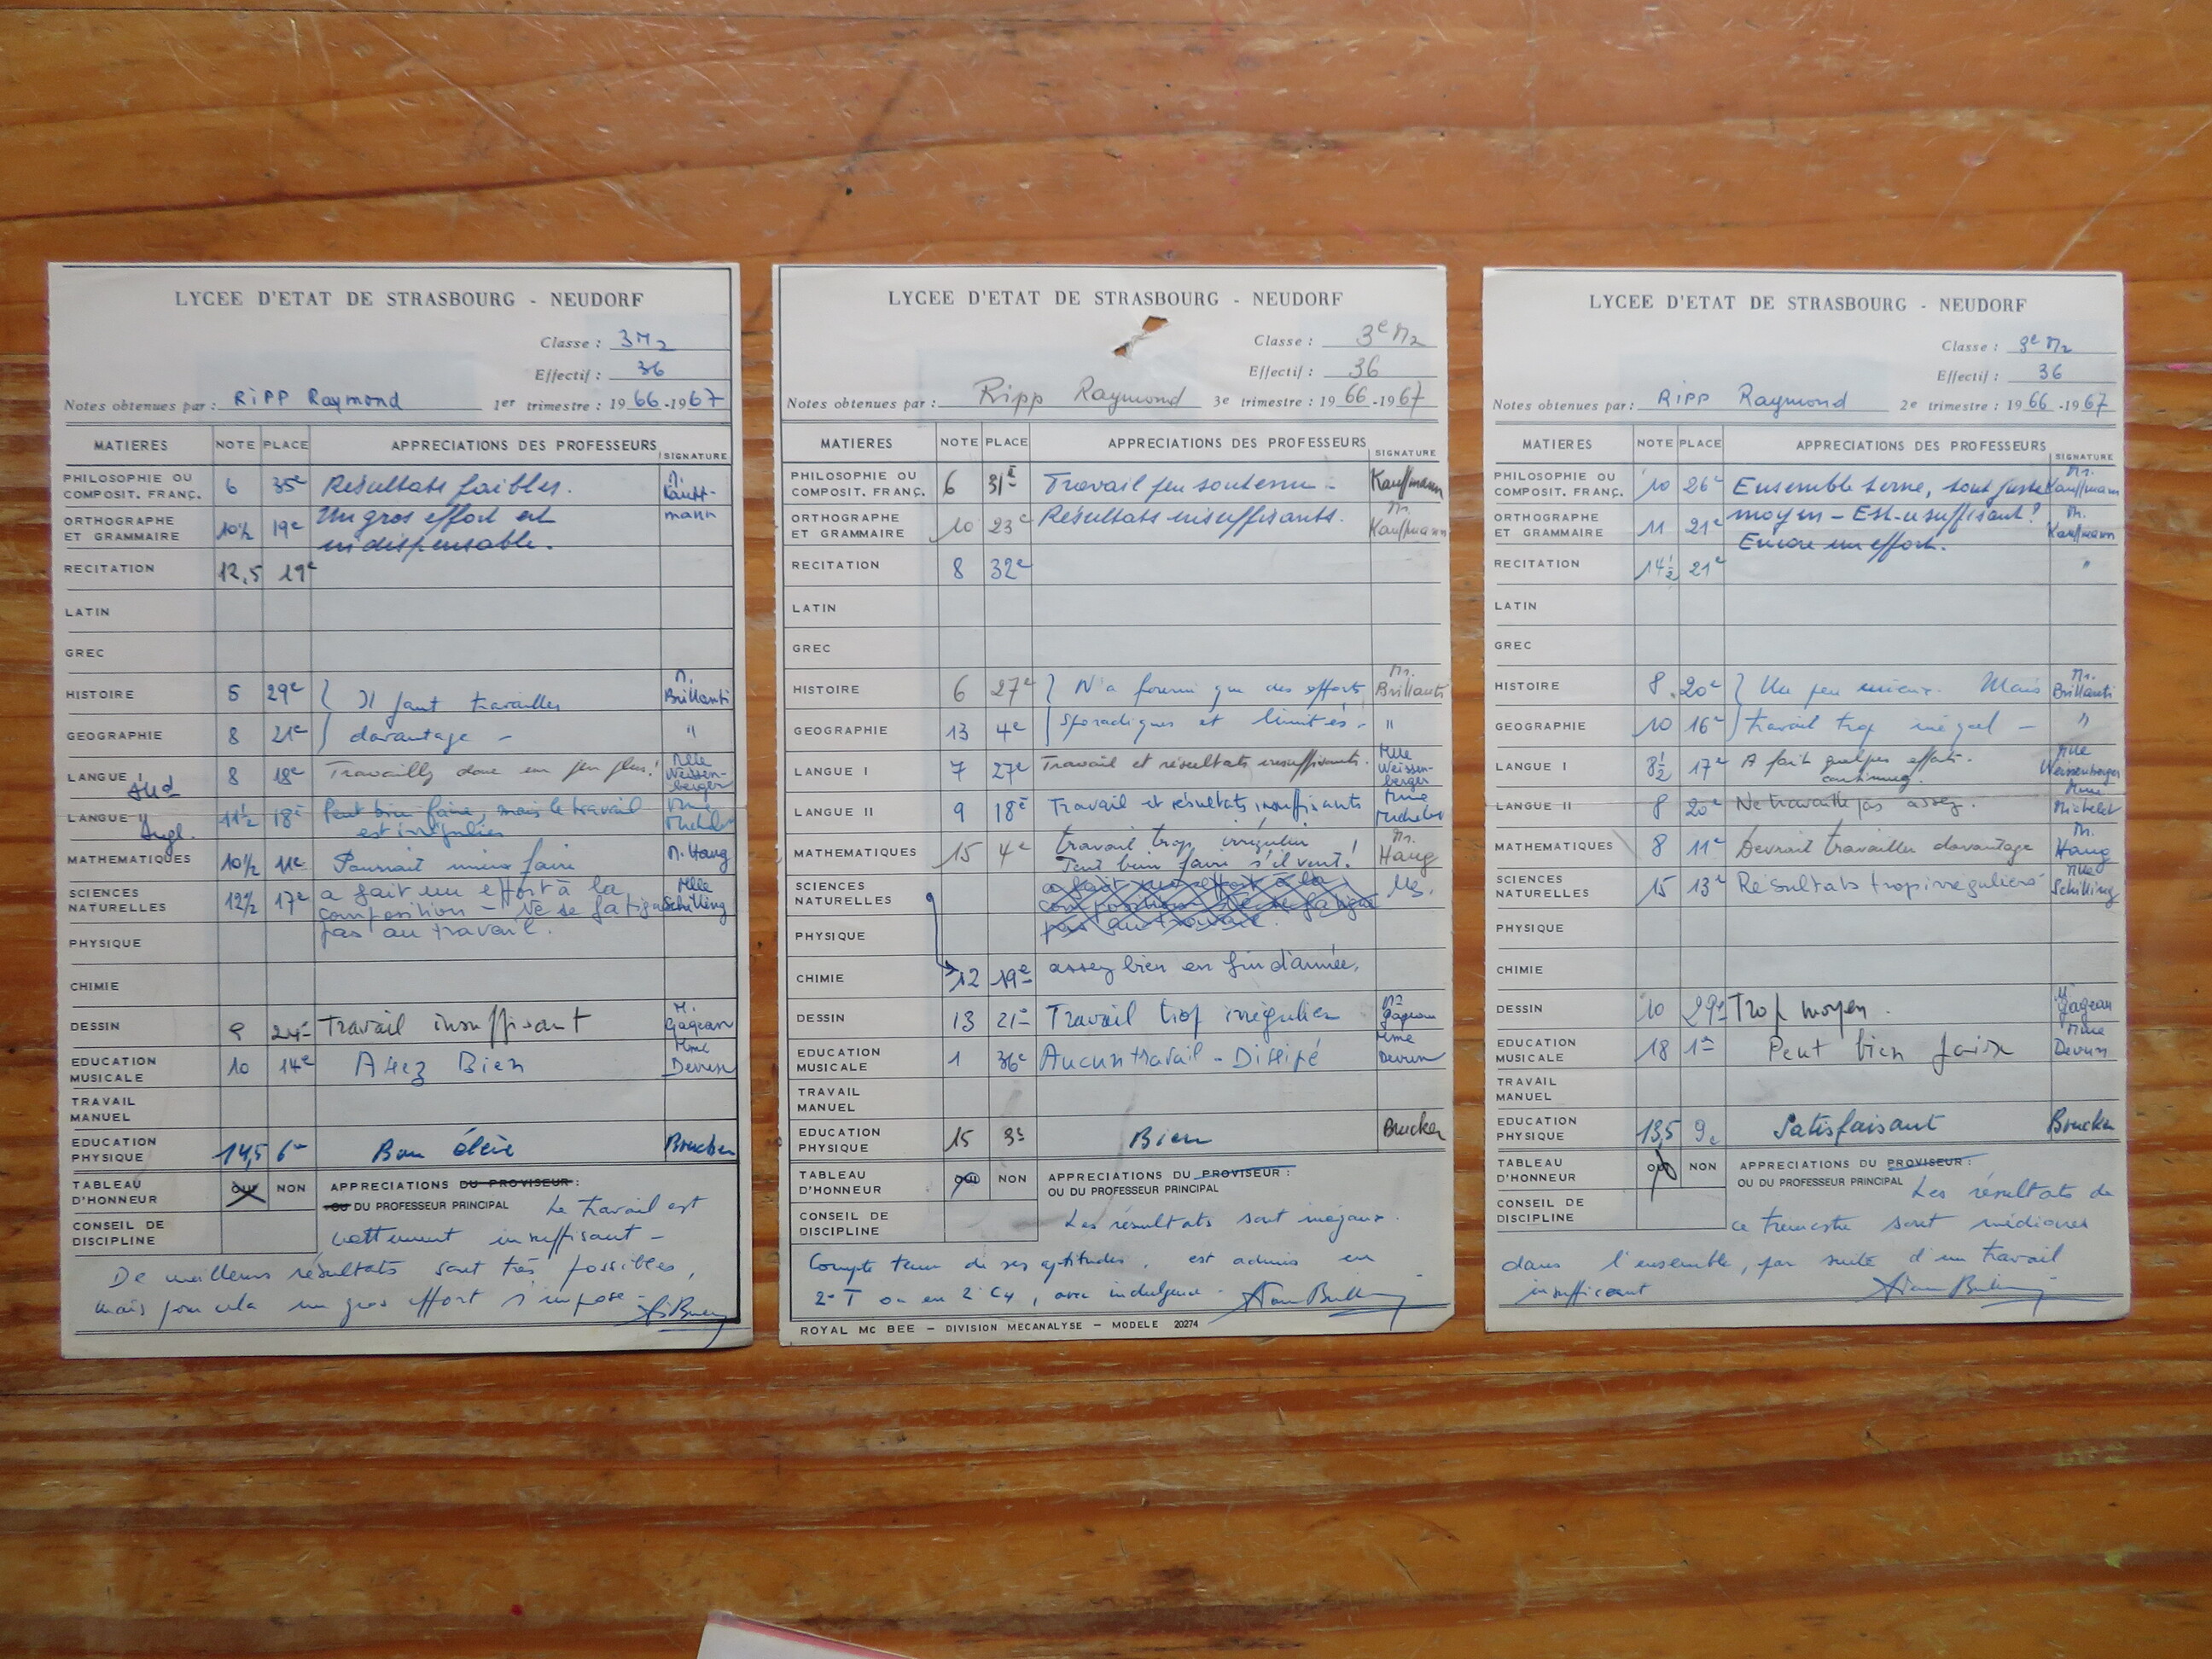 LYCEE D'ETAT DE STRASBOURG - NEUDORF
Classe : 3M2
Effectif : 36
Notes obtenues par : RiPP Raymond 1er trimestre : 1966-1967
MATIERES NOTE PLACE APPRECIATIONS DES PROFESSEURS SIGNATURE
PHILOSOPHIE OU COMPOSIT. FRANÇ. 6 35e Résultats faibles. M. Kauff-
ORTHOGRAPHE ET GRAMMAIRE 10½ 19e Un gros effort est mann
indispensable.
RECITATION 12,5 19e
LATIN
GREC
HISTOIRE 5 29e } Il faut travailler M. Brillanti
GEOGRAPHIE 8 21e } davantage - "
LANGUE I All 8 18e Travaillez donc un peu plus! Mlle Weissen-berger
LANGUE II Angl. 11½ 18e Peut bien faire, mais le travail Mme Michelet
est irrégulier
MATHEMATIQUES 10½ 11e Pourrait mieux faire M. Haug
SCIENCES NATURELLES 12½ 17e a fait un effort à la Mlle Schilling
composition - Ne se fatigue
pas au travail.
PHYSIQUE
CHIMIE
DESSIN 9 24e Travail insuffisant M. Gagean
EDUCATION MUSICALE 10 14e Assez Bien Mme Devun
TRAVAIL MANUEL
EDUCATION PHYSIQUE 14,5 6e Bon élève Brucker
TABLEAU D'HONNEUR OUI NON APPRECIATIONS DU PROVISEUR :
OU DU PROFESSEUR PRINCIPAL Le travail est
CONSEIL DE DISCIPLINE nettement insuffisant -
De meilleurs résultats sont très possibles,
mais pour cela un gros effort s'impose -
LYCEE D'ETAT DE STRASBOURG - NEUDORF
Classe : 3e M2
Effectif : 36
Notes obtenues par : Ripp Raymond 3e trimestre : 1966-1967
MATIERES NOTE PLACE APPRECIATIONS DES PROFESSEURS SIGNATURE
PHILOSOPHIE OU COMPOSIT. FRANÇ. 6 31e Travail peu soutenu - Kauffmann
ORTHOGRAPHE ET GRAMMAIRE 10 23e Résultats insuffisants. Mr. Kauffmann
RECITATION 8 32e
LATIN
GREC
HISTOIRE 6 27e } N'a fourni que des efforts Mr. Brillanti
GEOGRAPHIE 13 4e } sporadiques et limités - "
LANGUE I 7 27e Travail et résultats insuffisants. Mlle Weissen-berger
LANGUE II 9 18e Travail et résultats insuffisants Mme Michelet
MATHEMATIQUES 15 4e travail trop irrégulier Mr. Haug
Peut bien faire s'il veut!
SCIENCES NATURELLES a fait un effort à la
composition Ne se fatigue
pas au travail.
PHYSIQUE
CHIMIE 12 19e assez bien en fin d'année.
DESSIN 13 21e Travail trop irrégulier Mr Gagean
EDUCATION MUSICALE 1 36e Aucun travail - Dissipé Mme Devun
TRAVAIL MANUEL
EDUCATION PHYSIQUE 15 3e Bien Brucker
TABLEAU D'HONNEUR OUI NON APPRECIATIONS DU PROVISEUR :
OU DU PROFESSEUR PRINCIPAL
CONSEIL DE DISCIPLINE Les résultats sont inégaux.
Compte tenu de ses aptitudes, est admis en
2e T ou en 2e C4, avec indulgence.
ROYAL MC BEE - DIVISION MECANALYSE - MODELE 20274
LYCEE D'ETAT DE STRASBOURG - NEUDORF
Classe : 3e M2
Effectif : 36
Notes obtenues par : RiPP Raymond 2e trimestre : 1966-1967
MATIERES NOTE PLACE APPRECIATIONS DES PROFESSEURS SIGNATURE
PHILOSOPHIE OU COMPOSIT. FRANÇ. 10 26e Ensemble terne, tout juste Mr. Kauffmann
ORTHOGRAPHE ET GRAMMAIRE 11 21e moyen - Est-ce suffisant? Mr. Kauffmann
Encore un effort.
RECITATION 14½ 21e "
LATIN
GREC
HISTOIRE 8 20e } Un peu mieux. Mais Mr. Brillanti
GEOGRAPHIE 10 16e } travail trop inégal - "
LANGUE I 8½ 17e A fait quelques efforts. Mlle Weissenberger
continuez.
LANGUE II 8 20e Ne travaille pas assez. Mme Michelet
MATHEMATIQUES 8 11e Devrait travailler davantage M. Haug
SCIENCES NATURELLES 15 13e Résultats trop irréguliers Mlle Schilling
PHYSIQUE
CHIMIE
DESSIN 10 29e Trop moyen. M. Gagean
EDUCATION MUSICALE 18 1er Peut bien faire Mme Devun
TRAVAIL MANUEL
EDUCATION PHYSIQUE 13,5 9e Satisfaisant Brucker
TABLEAU D'HONNEUR OUI NON APPRECIATIONS DU PROVISEUR :
OU DU PROFESSEUR PRINCIPAL Les résultats de
CONSEIL DE DISCIPLINE ce trimestre sont médiocres
dans l'ensemble, par suite d'un travail
insuffisant